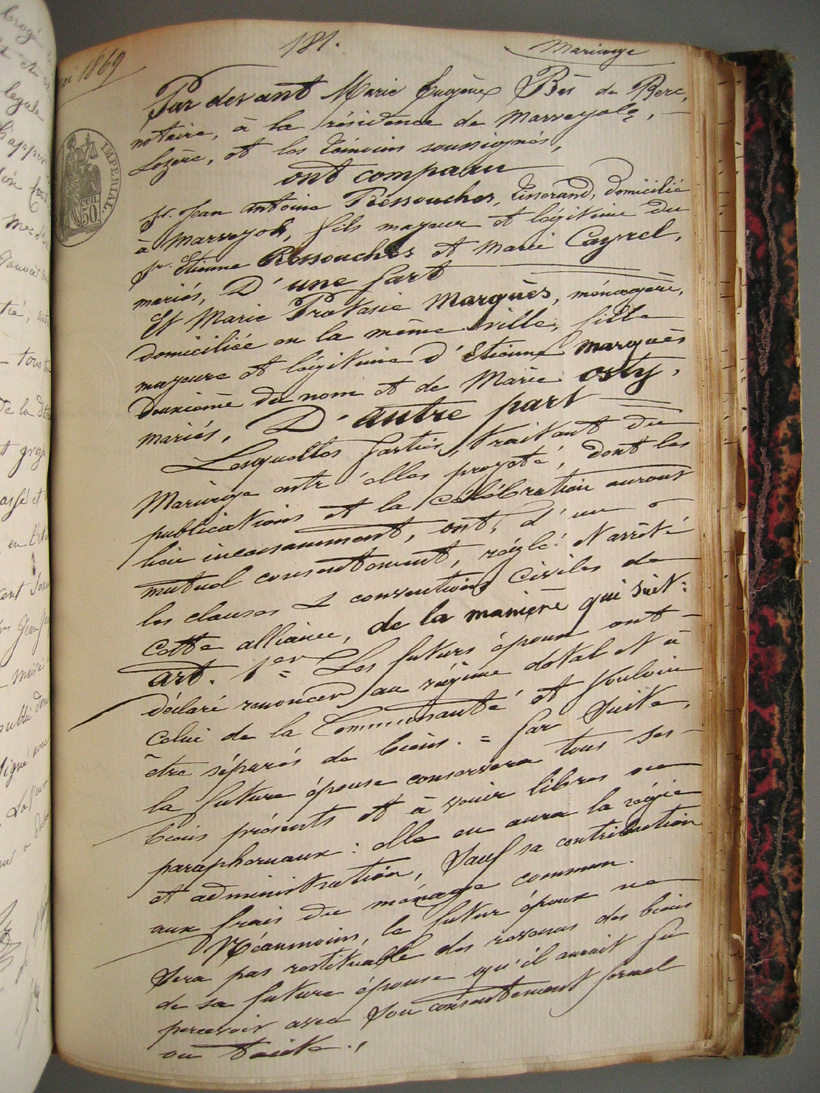 1869
181.
Mariage
Par devant Marie Eugène Bès de Berc,
notaire, à la résidence de Marvejols,
Lozère, et les témoins soussignés,
ont comparu
Sr. Jean Antoine Bessouches, tisserand, domicilié
à Marvejols, fils majeur et légitime du
Sr. Etienne Ressouches et Marie Cayrel,
mariés, D'une part
Et Marie Protasie Marquès, ménagère,
domiciliée en la même ville, fille
majeure et légitime d'Etienne Marquès
deuxième du nom et de Marie Osty,
mariés, D'autre part
Lesquelles parties, traitant du
Mariage entr'elles projeté, dont les
publications et la célébration auront
lieu incessamment, ont, d'un
mutuel consentement, réglé et arrêté
les clauses & conventions Civiles de
cette alliance, de la manière qui suit:
art. 1er = Les futurs époux ont
déclaré renoncer au régime dotal et à
celui de la Communauté et vouloir
être séparés de biens. = Par suite,
la future épouse conservera tous ses
biens présents et à venir libres ou
paraphernaux: elle en aura la régie
et administration, sauf sa contribution
aux frais du ménage commun.
Néanmoins, le futur époux ne
sera pas restituable des revenus des biens
de sa future épouse qu'il aurait pu
percevoir avec son consentement formel
ou tacite.
IMPERIAL.
50